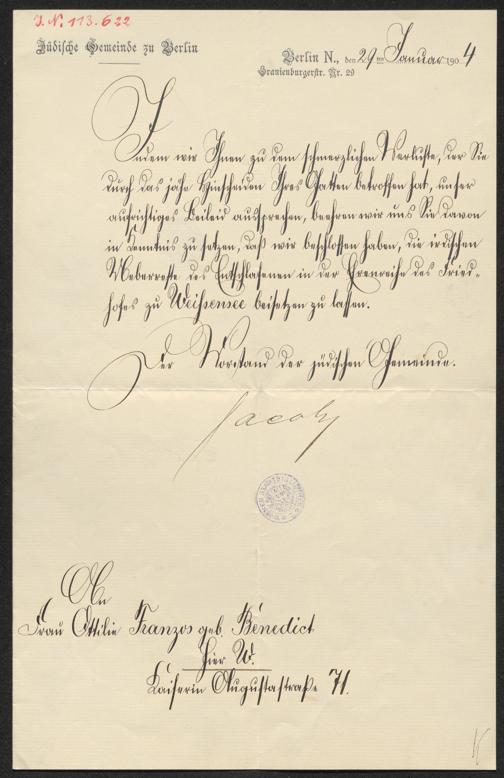 J. N. 113.622
Jüdische Gemeinde zu Berlin
Berlin N., den 29 ten Januar 1904
Oranienburgerstr. Nr. 29
Indem wir Ihnen zu dem schmerzlichen Verluste, der Sie
durch das jähe Hinscheiden Ihres Gatten betroffen hat, unser
aufrichtiges Beileid aussprechen, beehren wir uns Sie davon
in Kenntnis zu setzen, daß wir beschlossen haben, die irdischen
Ueberreste des Entschlafenen in der Ehrenreihe des Fried-
hofes zu Weißensee beisetzen zu lassen.
Der Vorstand der jüdischen Gemeinde.
Jacoby
An
Frau Ottilie Franzos geb. Benedict
Hier W.
Kaiserin Augustastraße 71.